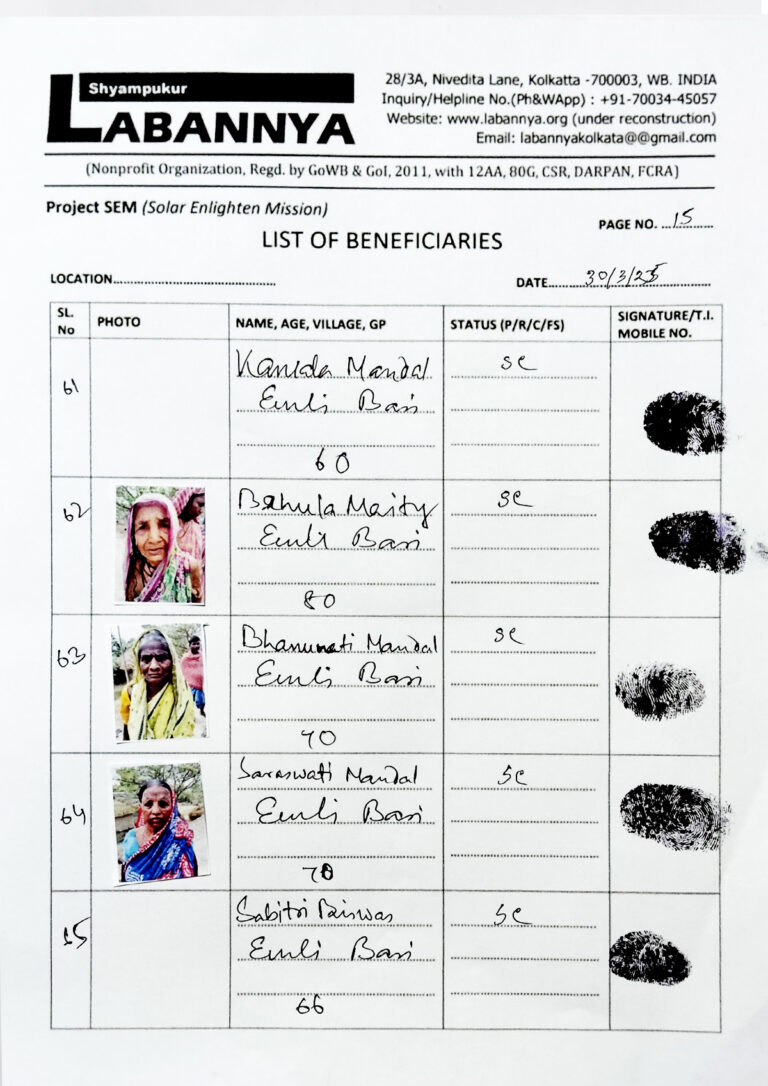 Shyampukur
LABANNYA
28/3A, Nivedita Lane, Kolkatta -700003, WB. INDIA
Inquiry/Helpline No.(Ph&WApp) : +91-70034-45057
Website: www.labannya.org (under reconstruction)
Email: labannyakolkata@@gmail.com
(Nonprofit Organization, Regd. by GoWB & GoI, 2011, with 12AA, 80G, CSR, DARPAN, FCRA)
Project SEM (Solar Enlighten Mission)
PAGE NO. 15
LIST OF BENEFICIARIES
LOCATION
DATE 30/3/25
SL. No PHOTO NAME, AGE, VILLAGE, GP STATUS (P/R/C/FS) SIGNATURE/T.I. MOBILE NO.
61 Mandal SC
Bari
60
62 Bahula Maity SC
Bari
80
63 Bhanumati Mandal SC
Bari
70
64 Saraswati Mandal SC
Bari
70
Sabitri Biswas SC
Bari
66